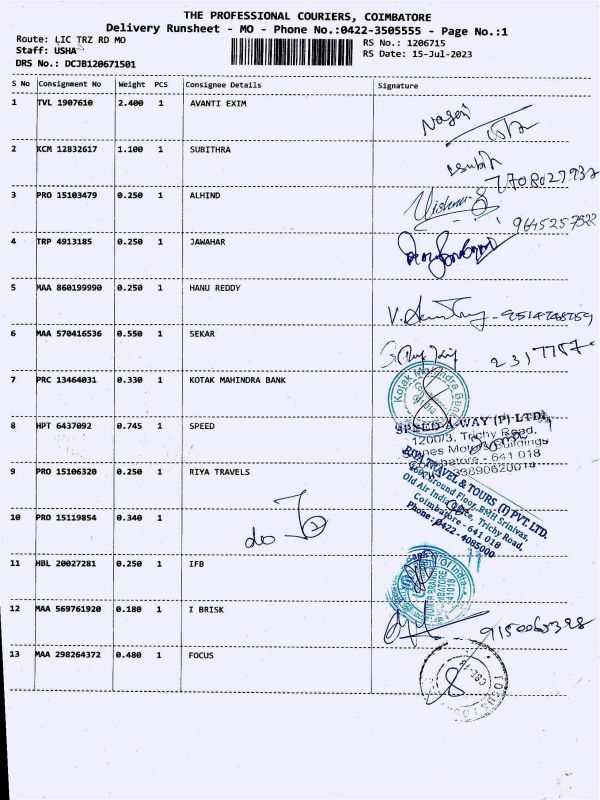 THE PROFESSIONAL COURIERS, COIMBATORE
Delivery Runsheet - MO - Phone No.:0422-3505555 - Page No.:1
Route: LIC TRZ RD MO RS No.: 1206715
Staff: USHA RS Date: 15-Jul-2023
DRS No.: DCJB120671501
S No Consignment No Weight PCS Consignee Details Signature
1 TVL 1907610 2.400 1 AVANTI EXIM
2 KCM 12832617 1.100 1 SUBITHRA
7708029937
3 PRO 15103479 0.250 1 ALHIND
9645257522
4 TRP 4913185 0.250 1 JAWAHAR
5 MAA 860199990 0.250 1 HANU REDDY
6 MAA 570416536 0.550 1 SEKAR
7 PRC 13464031 0.330 1 KOTAK MAHINDRA BANK
Kotak Mahindra Bank
8 HPT 6437092 0.745 1 SPEED
SPEED-A-WAY (P) LTD
1200/3, Trichy Road,
Buildings
641 018
9 PRO 15106320 0.250 1 RIYA TRAVELS
RIYA TRAVEL & TOURS (I) PVT. LTD.
Ground Floor, BMH Srinivas,
Old Air India Trichy Road,
Coimbatore - 641 018
Phone: 0422 - 4085000
10 PRO 15119854 0.340 1
do
11 HBL 20027281 0.250 1 IFB
12 MAA 569761920 0.180 1 I BRISK
13 MAA 298264372 0.480 1 FOCUS